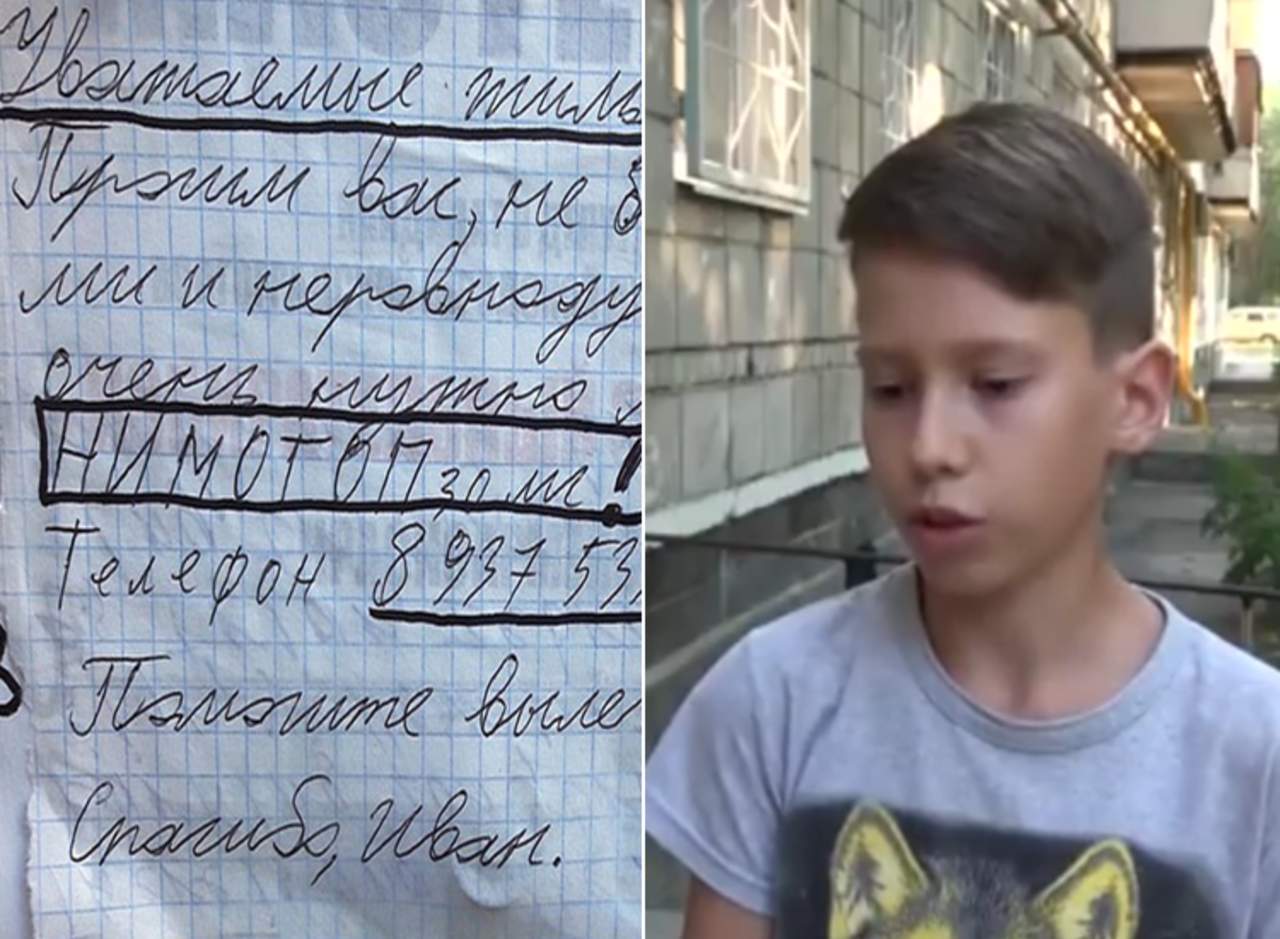 Уважаемые жиль
Просим вас, не б
ми и неравноду
очень нужно л
НИМОТОП 30 мг!
Телефон 8 937 53
Помогите выле
Спасибо, Иван.